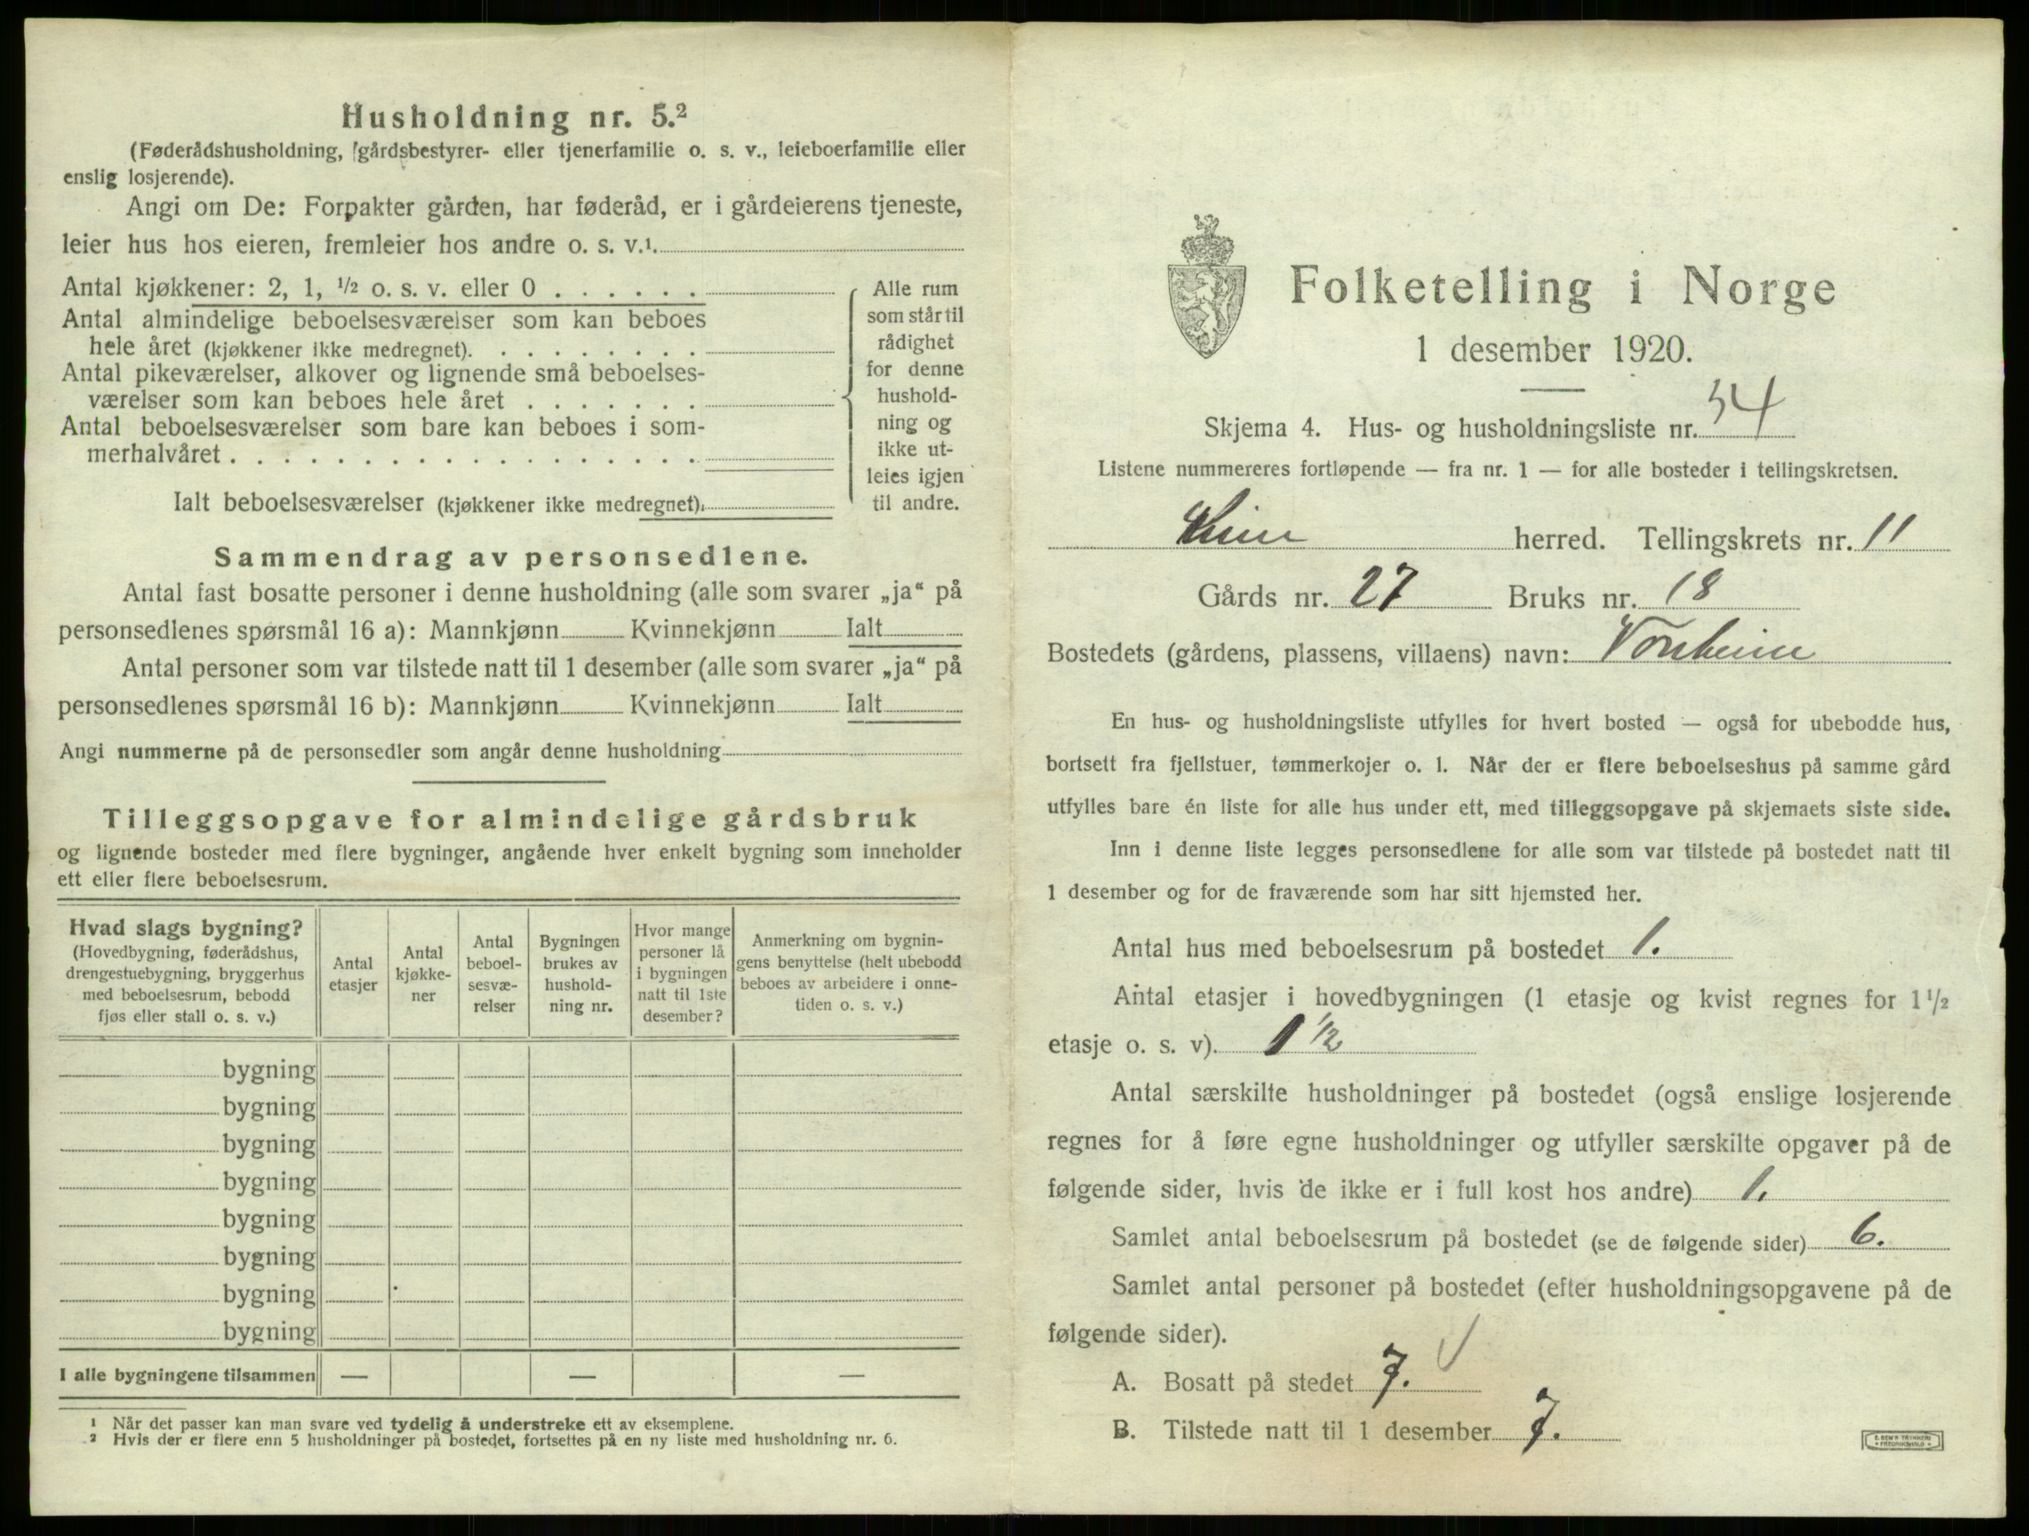 Husholdning nr. 5.²
(Føderådshusholdning, gårdsbestyrer- eller tjenerfamilie o. s. v., leieboerfamilie eller
enslig losjerende).
Angi om De: Forpakter gården, har føderåd, er i gårdeierens tjeneste,
leier hus hos eieren, fremleier hos andre o. s. v.¹
Antal kjøkkener: 2, 1, 1/2 o. s. v. eller 0 . . . . . .
Antal almindelige beboelsesværelser som kan beboes
hele året (kjøkkener ikke medregnet). . . . . . . . .
Antal pikeværelser, alkover og lignende små beboelses-
værelser som kan beboes hele året . . . . . . .
Antal beboelsesværelser som bare kan beboes i som-
merhalvåret . . . . . . . . . . . . . . . . . .
Ialt beboelsesværelser (kjøkkener ikke medregnet).
Alle rum
som står til
rådighet
for denne
hushold-
ning og
ikke ut-
leies igjen
til andre.
Sammendrag av personsedlene.
Antal fast bosatte personer i denne husholdning (alle som svarer „ja“ på
personsedlenes spørsmål 16 a): Mannkjønn Kvinnekjønn Ialt
Antal personer som var tilstede natt til 1 desember (alle som svarer „ja“ på
personsedlenes spørsmål 16 b): Mannkjønn Kvinnekjønn Ialt
Angi nummerne på de personsedler som angår denne husholdning
Tilleggsopgave for almindelige gårdsbruk
og lignende bosteder med flere bygninger, angående hver enkelt bygning som inneholder
ett eller flere beboelsesrum.
Hvad slags bygning?
(Hovedbygning, føderådshus,
drengestuebygning, bryggerhus
med beboelsesrum, bebodd
fjøs eller stall o. s. v.)
Antal
etasjer
Antal
kjøkke-
ner
Antal
beboel-
sesvæ-
relser
Bygningen
brukes av
hushold-
ning nr.
Hvor mange
personer lå
i bygningen
natt til 1ste
desember?
Anmerkning om bygnin-
gens benyttelse (helt ubebodd
beboes av arbeidere i onne-
tiden o. s. v.)
bygning
bygning
bygning
bygning
bygning
bygning
bygning
bygning
I alle bygningene tilsammen — — —
¹ Når det passer kan man svare ved tydelig å understreke ett av eksemplene.
² Hvis der er flere enn 5 husholdninger på bostedet, fortsettes på en ny liste med husholdning nr. 6.
Folketelling i Norge
1 desember 1920.
Skjema 4. Hus- og husholdningsliste nr. 34
Listene nummereres fortløpende — fra nr. 1 — for alle bosteder i tellingskretsen.
Heim herred. Tellingskrets nr. 11
Gårds nr. 27 Bruks nr. 18
Bostedets (gårdens, plassens, villaens) navn: Vonheim
En hus- og husholdningsliste utfylles for hvert bosted — også for ubebodde hus,
bortsett fra fjellstuer, tømmerkojer o. l. Når der er flere beboelseshus på samme gård
utfylles bare én liste for alle hus under ett, med tilleggsopgave på skjemaets siste side.
Inn i denne liste legges personsedlene for alle som var tilstede på bostedet natt til
1 desember og for de fraværende som har sitt hjemsted her.
Antal hus med beboelsesrum på bostedet 1.
Antal etasjer i hovedbygningen (1 etasje og kvist regnes for 1 1/2
etasje o. s. v). 1 1/2
Antal særskilte husholdninger på bostedet (også enslige losjerende
regnes for å føre egne husholdninger og utfyller særskilte opgaver på de
følgende sider, hvis de ikke er i full kost hos andre) 1.
Samlet antal beboelsesrum på bostedet (se de følgende sider) 6.
Samlet antal personer på bostedet (efter husholdningsopgavene på de
følgende sider).
A. Bosatt på stedet 7. √
B. Tilstede natt til 1 desember 7.